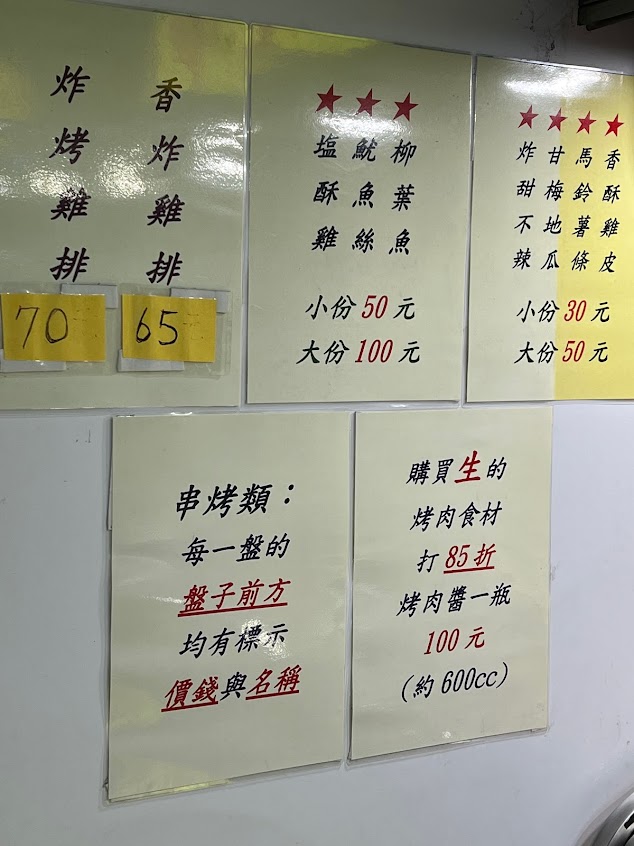 香炸雞排
65
炸烤雞排
70
★★★
柳葉魚
魷魚絲
塩酥雞
小份50元
大份100元
★★★★
香酥雞皮
馬鈴薯條
甘梅地瓜
炸甜不辣
小份30元
大份50元
串烤類：
每一盤的
盤子前方
均有標示
價錢與名稱
購買生的
烤肉食材
打85折
烤肉醬一瓶
100元
(約600cc)